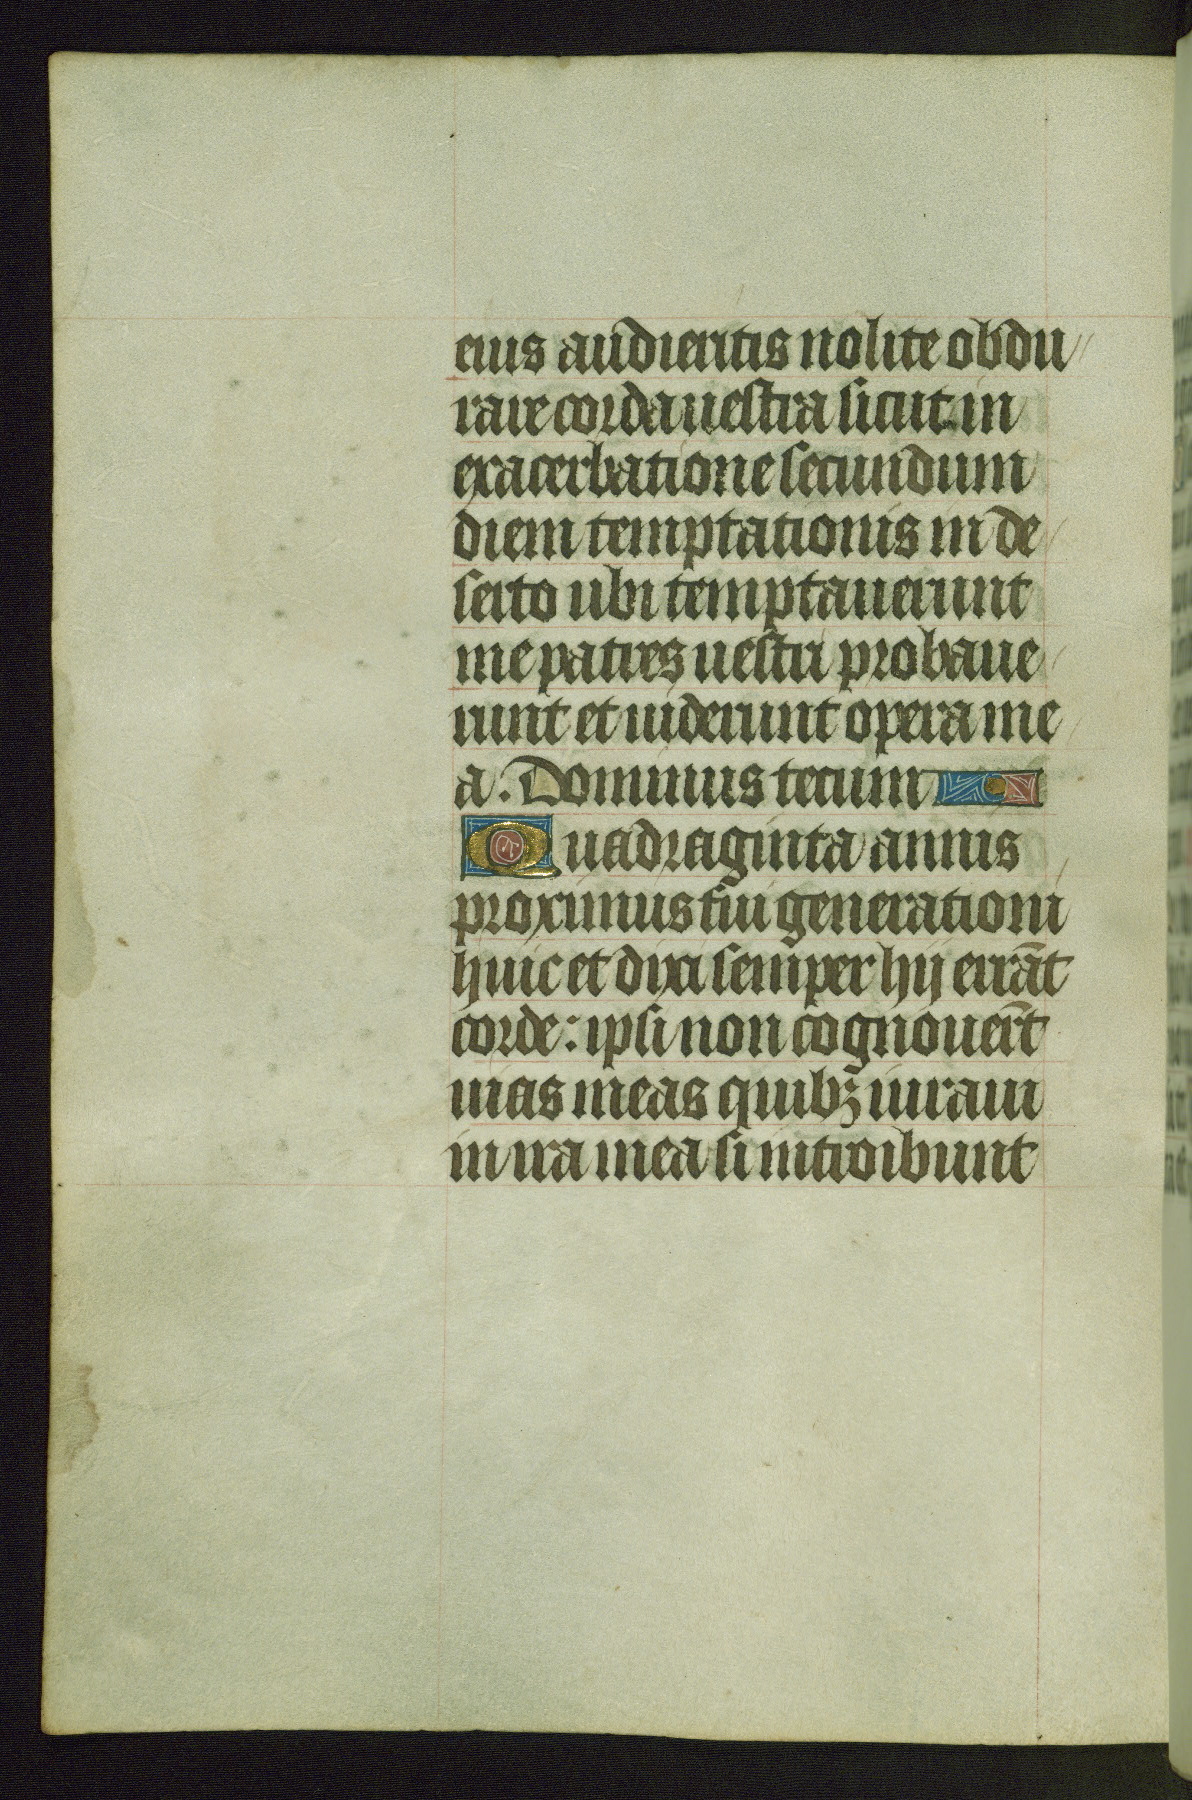 eius audieritis nolite obdu
rare corda uestra sicut in
exacerbatione secundum
diem temptationis in de
serto ubi temptauerunt
me patres uestri probaue
runt et uiderunt opera me
a. Dominus tecum
Quadraginta annis
proximus fui generationi
huic et dixi semper hij errāt
corde: ipsi non cognouer̄t
uias meas quibꝫ iuraui
in ira mea si introibunt